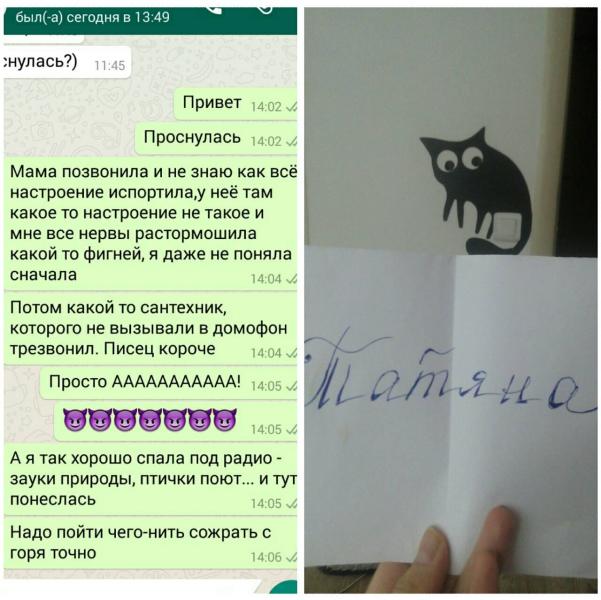 был(-а) сегодня в 13:49
снулась?) 11:45
Привет 14:02
Проснулась 14:02
Мама позвонила и не знаю как всё
настроение испортила,у неё там
какое то настроение не такое и
мне все нервы растормошила
какой то фигней, я даже не поняла
сначала 14:04
Потом какой то сантехник,
которого не вызывали в домофон
трезвонил. Писец короче 14:04
Просто АААААААААААА! 14:05
😈😈😈😈😈😈😈 14:05
А я так хорошо спала под радио -
зауки природы, птички поют... и тут
понеслась 14:05
Надо пойти чего-нить сожрать с
горя точно 14:06
Татяна